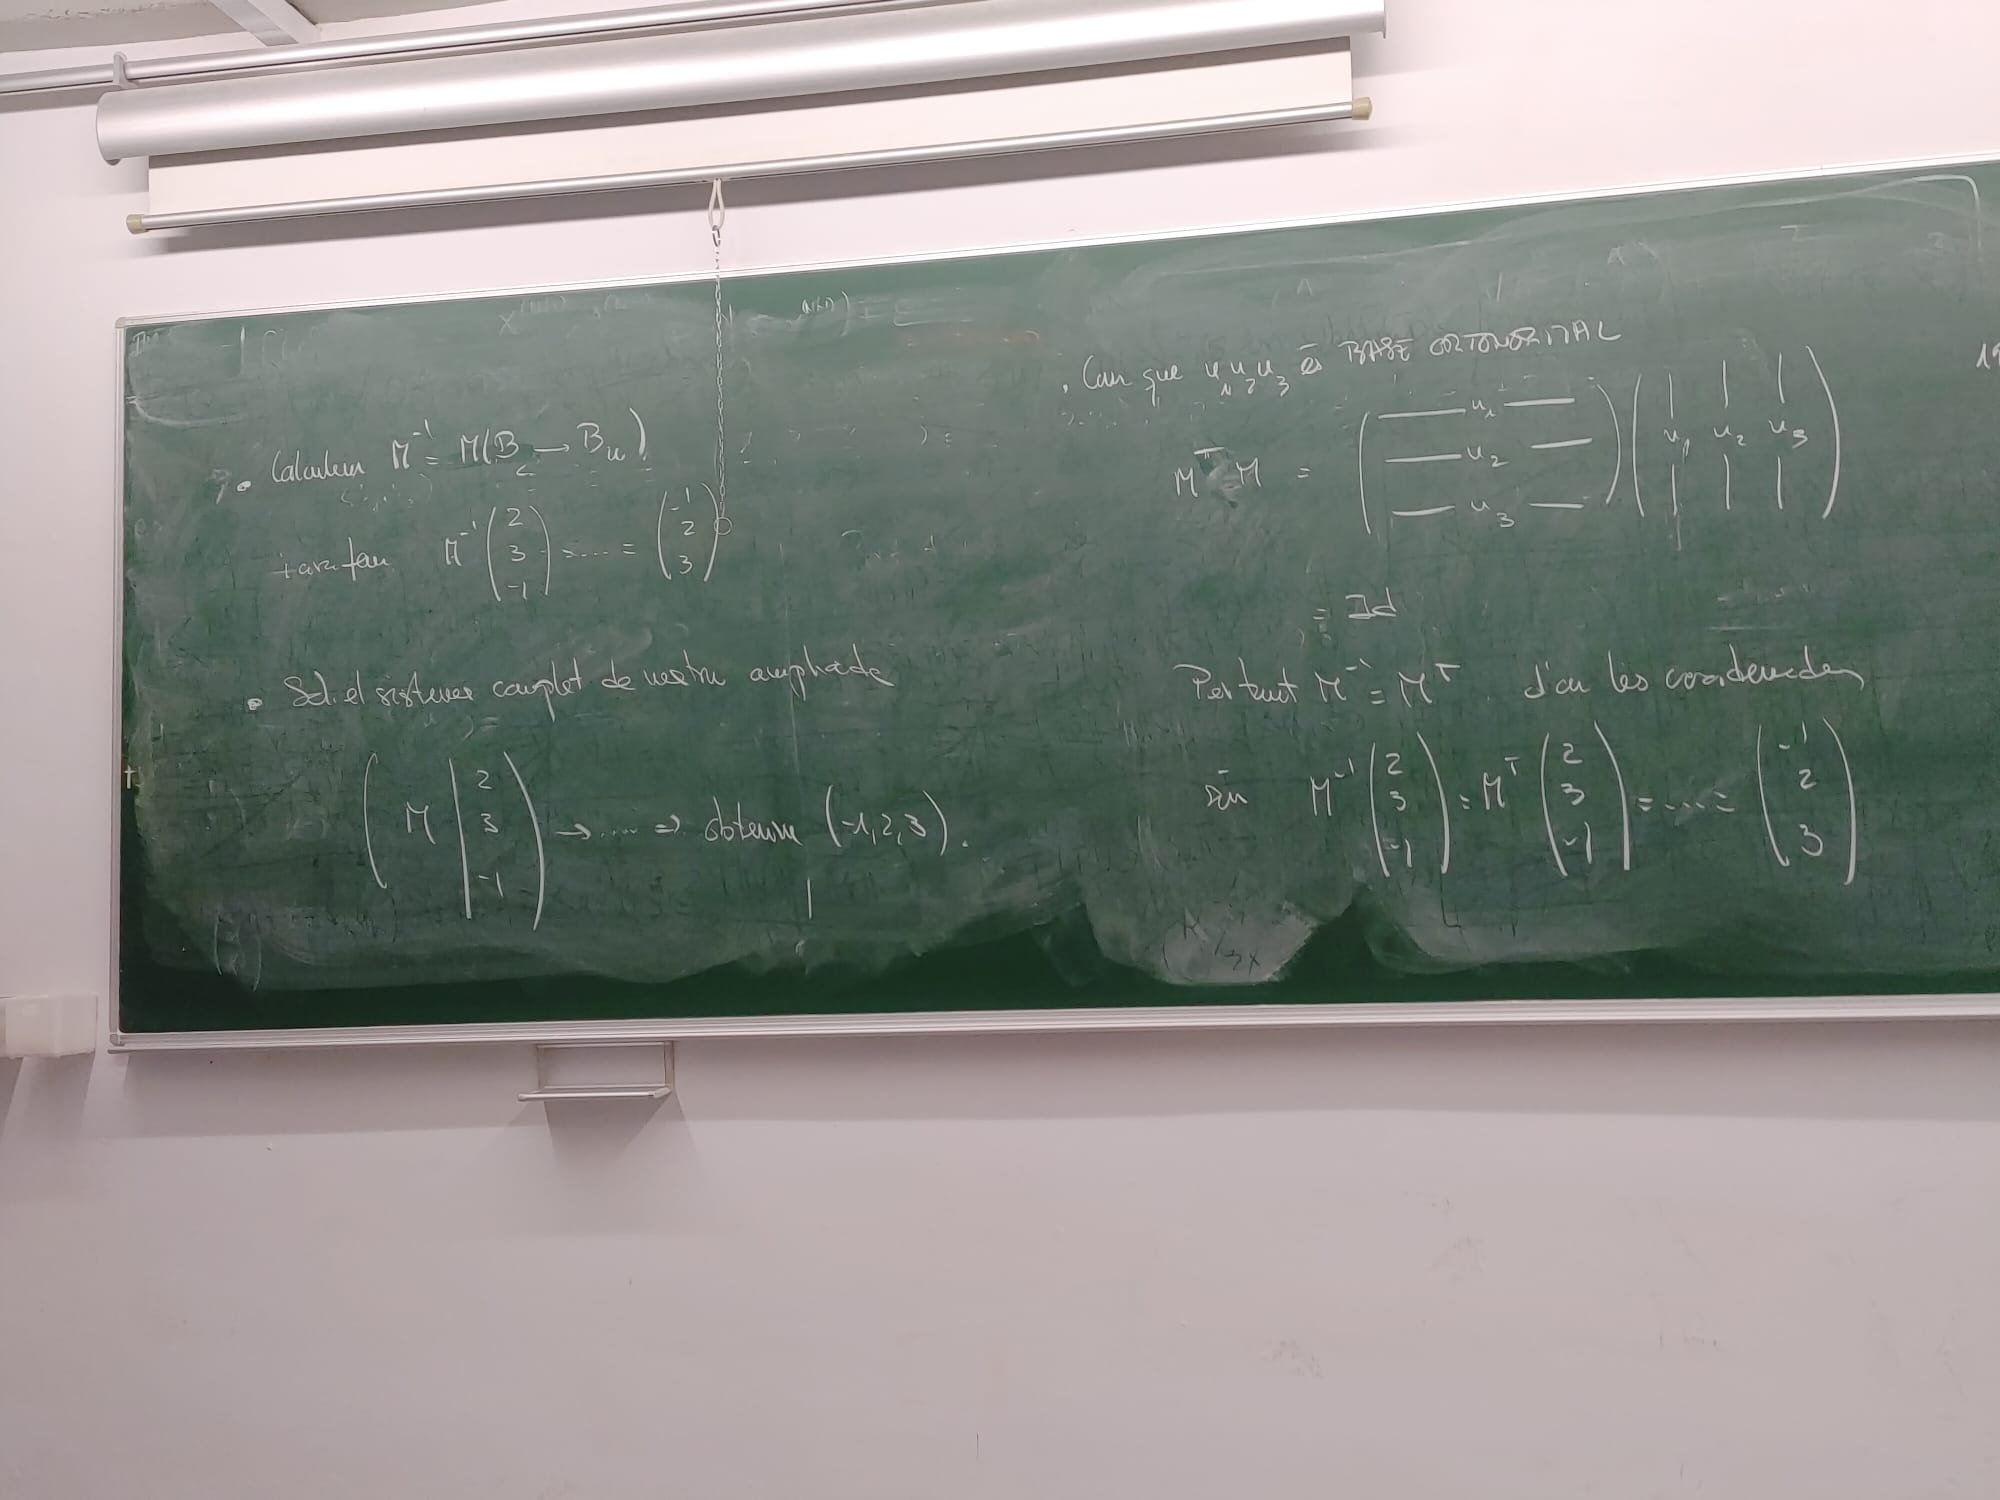 • Calculem M⁻¹ = M(B_c → B_u)
i ara fem M⁻¹ (2 3 -1) = .... = (-1 2 3)
• Sol. el sistema complet de matriu ampliada
( M | 2 3 -1 ) → .... → obtenim (-1, 2, 3).
• Com que u₁ u₂ u₃ és BASE ORTONORMAL
Mᵀ M = ( — u₁ — — u₂ — — u₃ — ) ( | u₁ | | u₂ | | u₃ | )
= Id
Per tant M⁻¹ = Mᵀ. i les coordenades
són M⁻¹ (2 3 -1) = Mᵀ (2 3 -1) = .... = (-1 2 3)